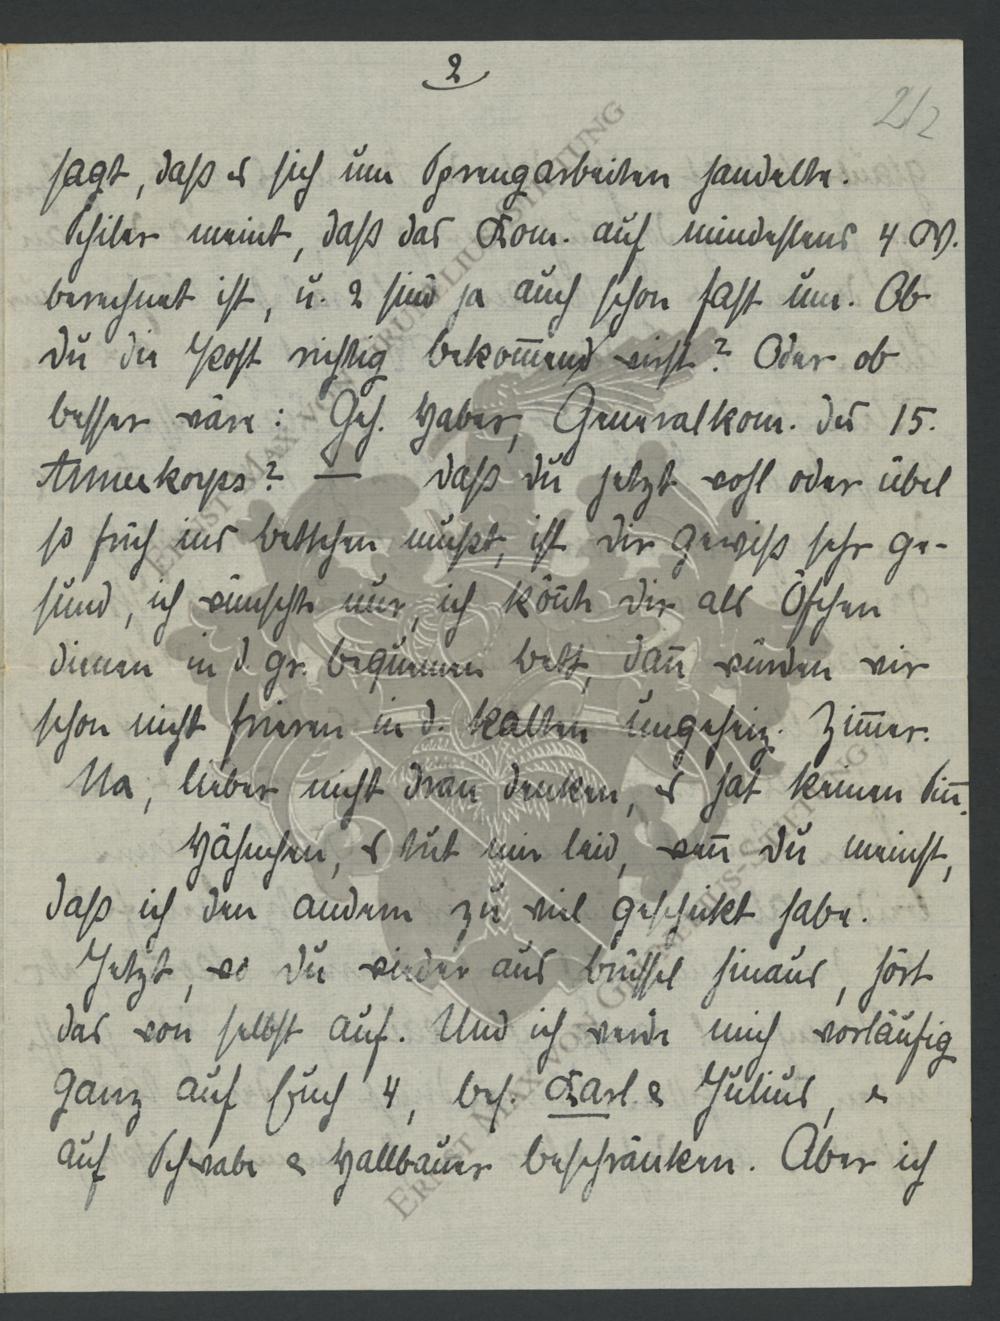 2
2/2
sagt, daß es sich um Sprengarbeiten handelte.
Schiler meint, daß das Kom. auf mindestens 4 W.
berechnet ist, u. 2 sind ja auch schon fast um. Ob
du die Post richtig bekommend wirst? Oder ob
besser wäre: Geh. Haber, Generalkom. des 15.
Armeekorps? — daß du jetzt wohl oder übel
so früh ins bettchen mußt, ist dir gewiß sehr ge-
sund, ich wünschte nur, ich kön̅te dir als Öfchen
dienen in d. gr. bequemen bett, dan̅ würden wir
schon nicht frieren in d. kalten ungeheiz. Zim̅er.
Na, lieber nicht dran denken, es hat keinen Sin̅.
Hähnchen, es tut mir leid, wen̅ du meinst,
daß ich den andern zu viel geschickt habe.
Jetzt, wo du wieder aus brüssel hinaus, hört
das von selbst auf. Und ich werde mich vorläufig
ganz auf Euch 4, bes. Karl & Julius, &
auf Schwabe & Hallbauer beschränken. Aber ich
ERNST MAX VON GRUNELIUS-STIFTUNG
ERNST MAX VON GRUNELIUS-STIFTUNG